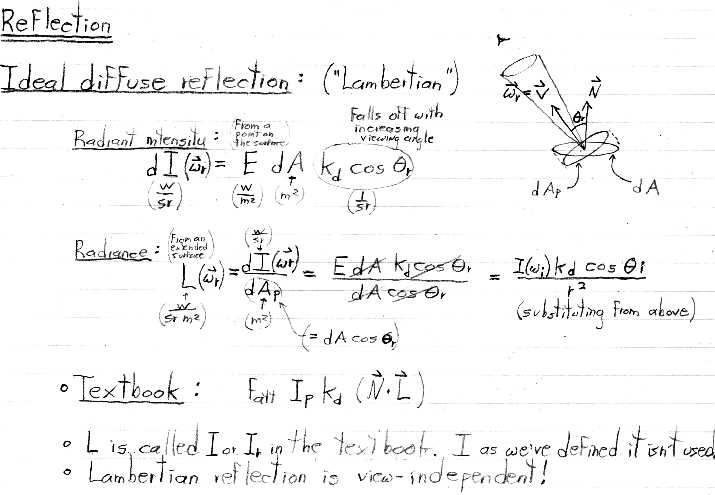 Reflection
Ideal diffuse reflection: ("Lambertian")
Radiant intensity: (From a point on the surface)
Falls off with increasing viewing angle
dI(ω⃗r) = E dA k_d cos θr
(W/sr) (W/m²) (m²) (1/sr)
ω⃗r = V⃗ N⃗ θr
dAp dA
Radiance: (From an extended surface)
L(ω⃗r) = dI(ω⃗r)/dAp = E dA k_d cos θr / dA cos θr = I(ωi) k_d cos θi / r²
(W/sr m²) (W/sr) (m²) (substituting from above)
(= dA cos θr)
• Textbook: Fatt Ip k_d (N⃗·L⃗)
• L is called I or Ir in the textbook. I as we've defined it isn't used
• Lambertian reflection is view-independent!